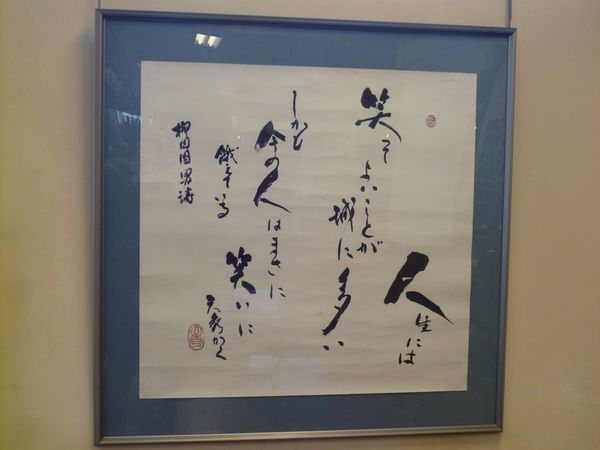 人生には
笑ってよいことが
誠に多い
しかも
今の人はまさに
笑いに
餓えて
柳田国男